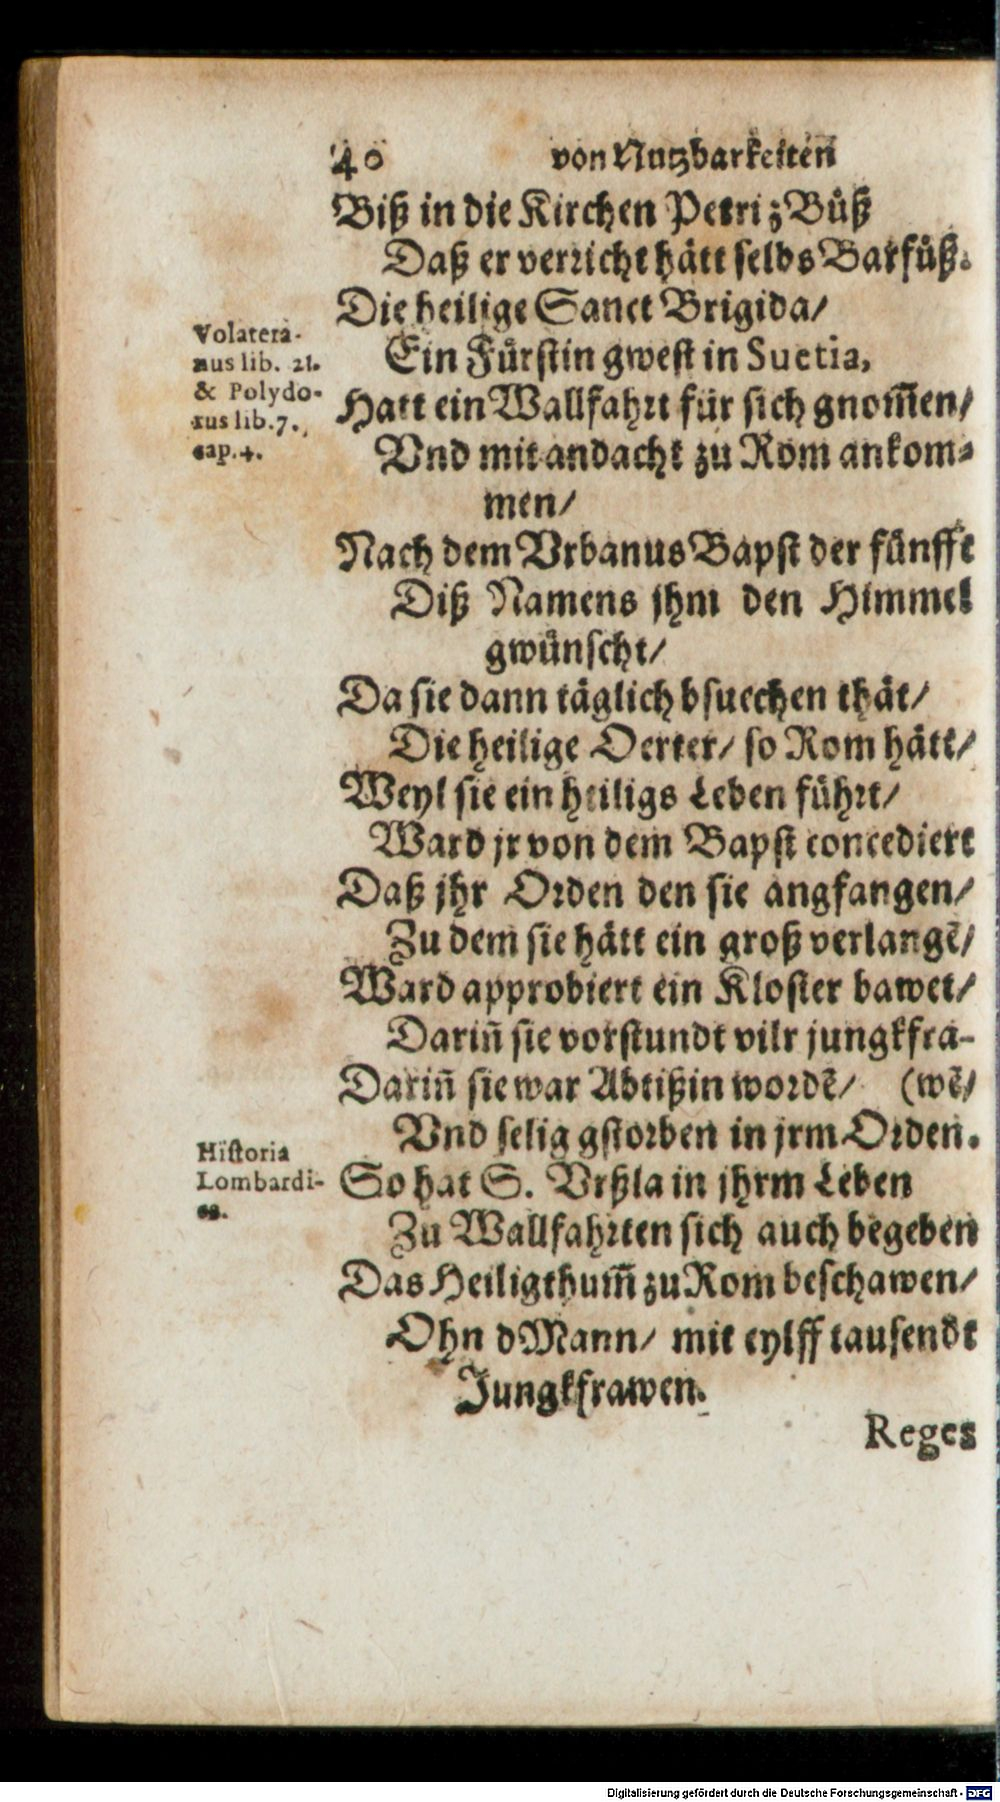 40 von Nutzbarkeiten
Biß in die Kirchen Petri z Büß
Daß er verricht hätt selbs Barfüß.
Die heilige Sanct Brigida/
Volatera-
nus lib. 21.
& Polydo-
rus lib. 7.
cap. 4.
Ein Fürstin gwest in Suetia,
Hatt ein Wallfahrt für sich gnom̃en/
Vnd mit andacht zu Rom ankom-
men/
Nach dem Vrbanus Bapst der fünfft
Diß Namens jhm den Himmel
gwünscht/
Da sie dann täglich bsuechen thät/
Die heilige Oerter/ so Rom hätt/
Weyl sie ein heiligs Leben führt/
Ward jr von dem Bapst concediert
Daß jhr Orden den sie angfangen/
Zu dem sie hätt ein groß verlangē/
Ward approbiert ein Kloster bawet/
Dariñ sie vorstundt vilr jungkfra-
Dariñ sie war Abtißin wordē/ (wē/
Vnd selig gstorben in jrm Orden.
Historia
Lombardi-
ca.
So hat S. Vrßla in jhrm Leben
Zu Wallfahrten sich auch begeben
Das Heiligthum̃ zu Rom beschawen/
Ohn dMann/ mit eylff tausendt
Jungkfrawen.
Reges
Digitalisierung gefördert durch die Deutsche Forschungsgemeinschaft - DFG